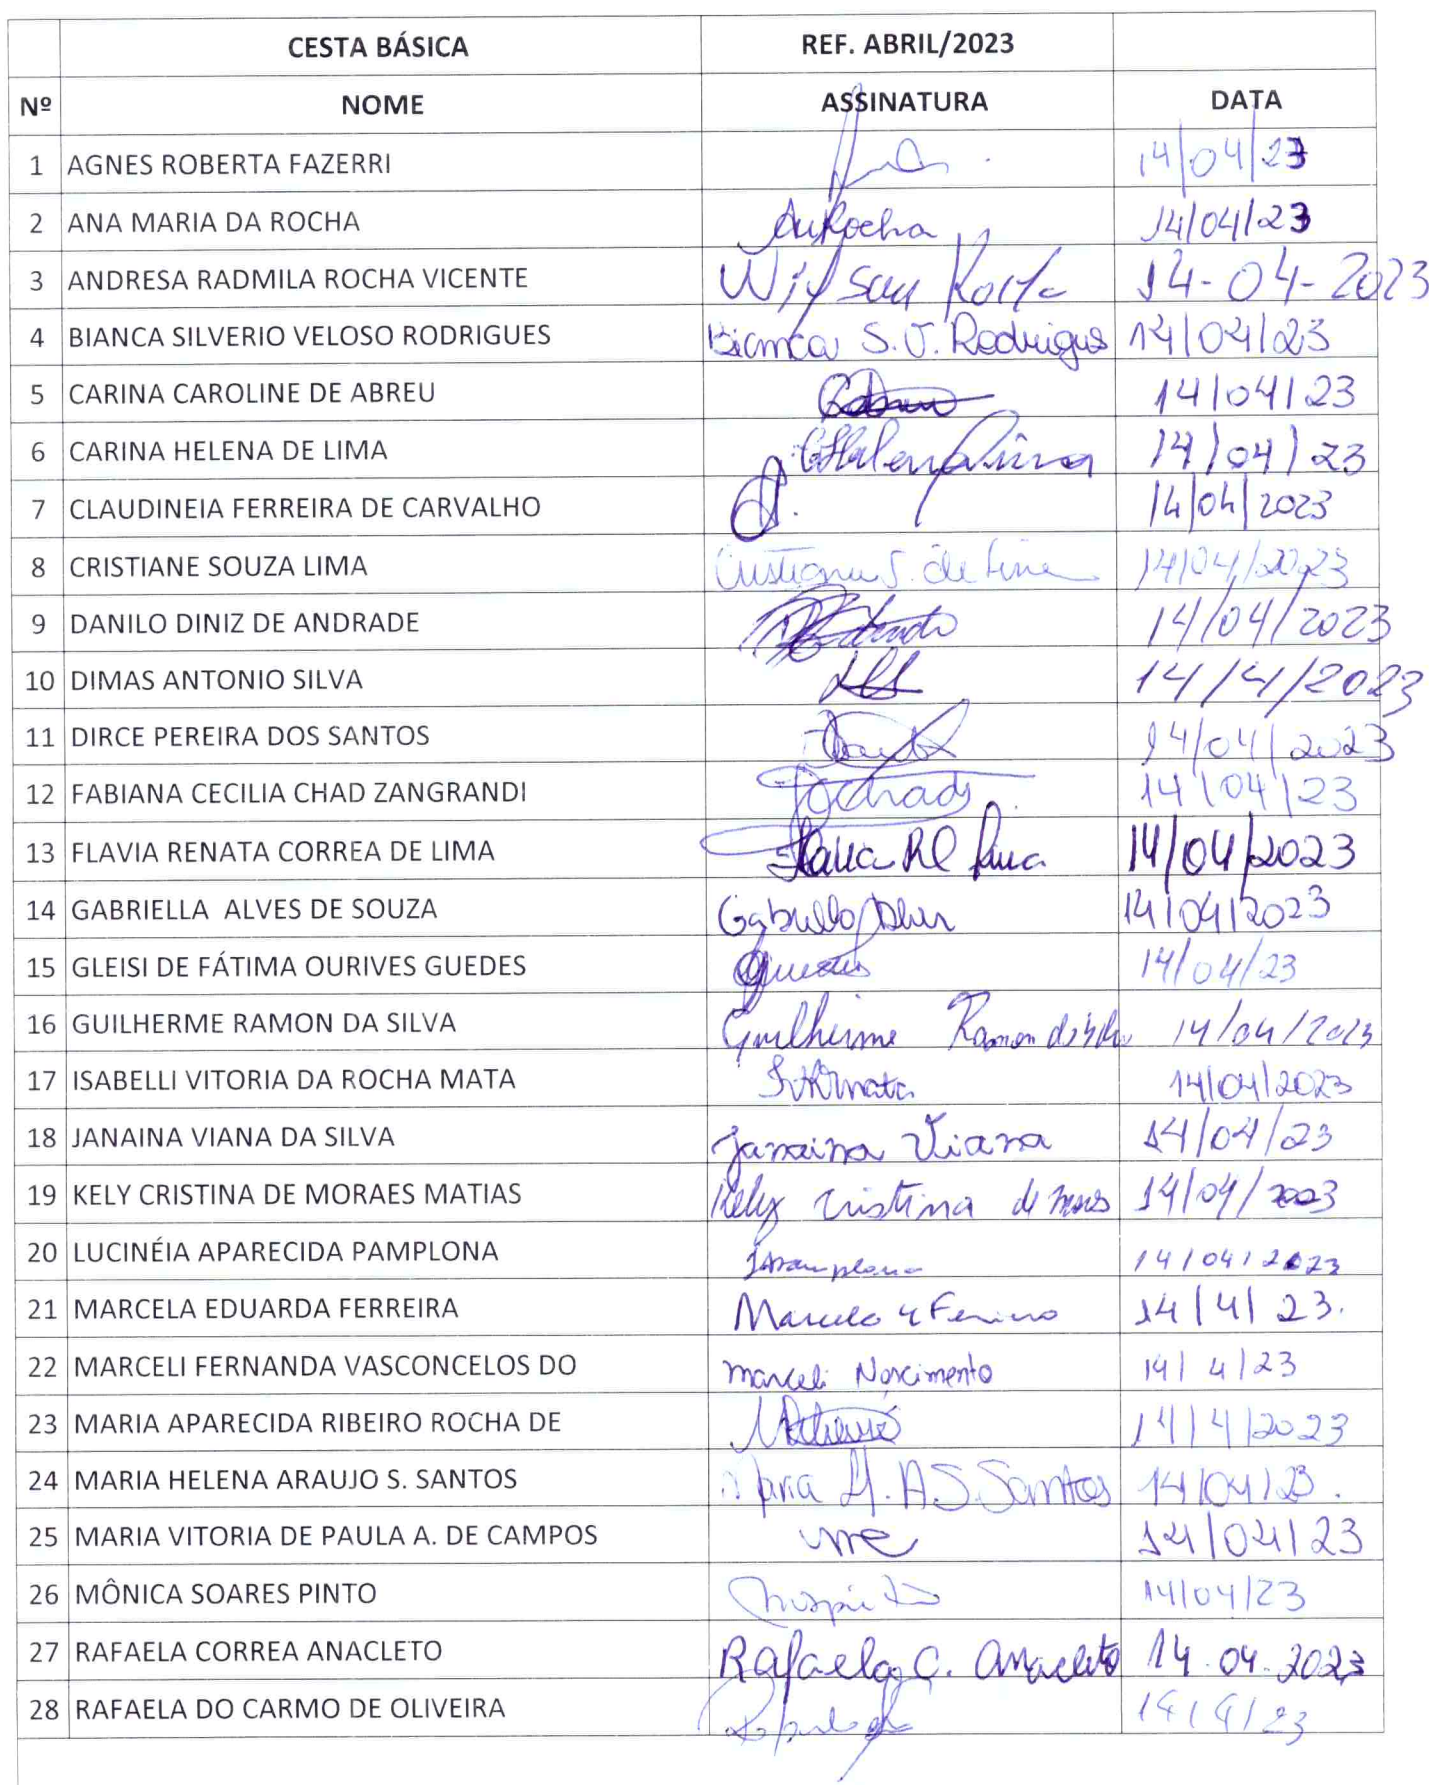 CESTA BÁSICA REF. ABRIL/2023
Nº NOME ASSINATURA DATA
1 AGNES ROBERTA FAZERRI 14/04/23
2 ANA MARIA DA ROCHA AuRocha 14/04/23
3 ANDRESA RADMILA ROCHA VICENTE 14-04-2023
4 BIANCA SILVERIO VELOSO RODRIGUES Bianca S.V. Rodrigues 14/04/23
5 CARINA CAROLINE DE ABREU 14/04/23
6 CARINA HELENA DE LIMA 14/04/23
7 CLAUDINEIA FERREIRA DE CARVALHO 14/04/2023
8 CRISTIANE SOUZA LIMA Cristiane S. de Lima 14/04/2023
9 DANILO DINIZ DE ANDRADE 14/04/2023
10 DIMAS ANTONIO SILVA 14/4/2023
11 DIRCE PEREIRA DOS SANTOS 14/04/2023
12 FABIANA CECILIA CHAD ZANGRANDI 14/04/23
13 FLAVIA RENATA CORREA DE LIMA 14/04/2023
14 GABRIELLA ALVES DE SOUZA 14/04/2023
15 GLEISI DE FÁTIMA OURIVES GUEDES Guedes 14/04/23
16 GUILHERME RAMON DA SILVA Guilherme Ramon da Silva 14/04/2023
17 ISABELLI VITORIA DA ROCHA MATA 14/04/2023
18 JANAINA VIANA DA SILVA Janaina Viana 14/04/23
19 KELY CRISTINA DE MORAES MATIAS Kely Cristina de 14/04/2023
20 LUCINÉIA APARECIDA PAMPLONA 14/04/2023
21 MARCELA EDUARDA FERREIRA 14/4/23.
22 MARCELI FERNANDA VASCONCELOS DO Marceli Nascimento 14/4/23
23 MARIA APARECIDA RIBEIRO ROCHA DE 14/4/2023
24 MARIA HELENA ARAUJO S. SANTOS Maria H. A. S. Santos 14/04/23.
25 MARIA VITORIA DE PAULA A. DE CAMPOS 14/04/23
26 MÔNICA SOARES PINTO 14/04/23
27 RAFAELA CORREA ANACLETO Rafaela C. Anacleto 14.04.2023
28 RAFAELA DO CARMO DE OLIVEIRA 14/4/23